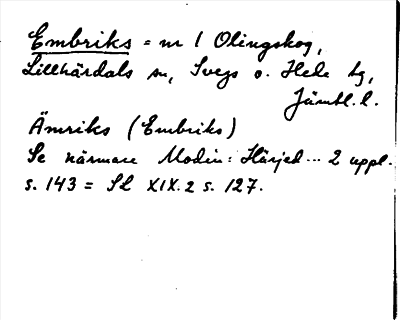 Embriks = nr 1 Olingskog,
Lillhärdals sn, Svegs o. Hede tg,
Jämtl. l.
Ämriks (Embriks)
Se närmare Modin: Härjed... 2 uppl.
s. 143 = SL XIX.2 s. 127.